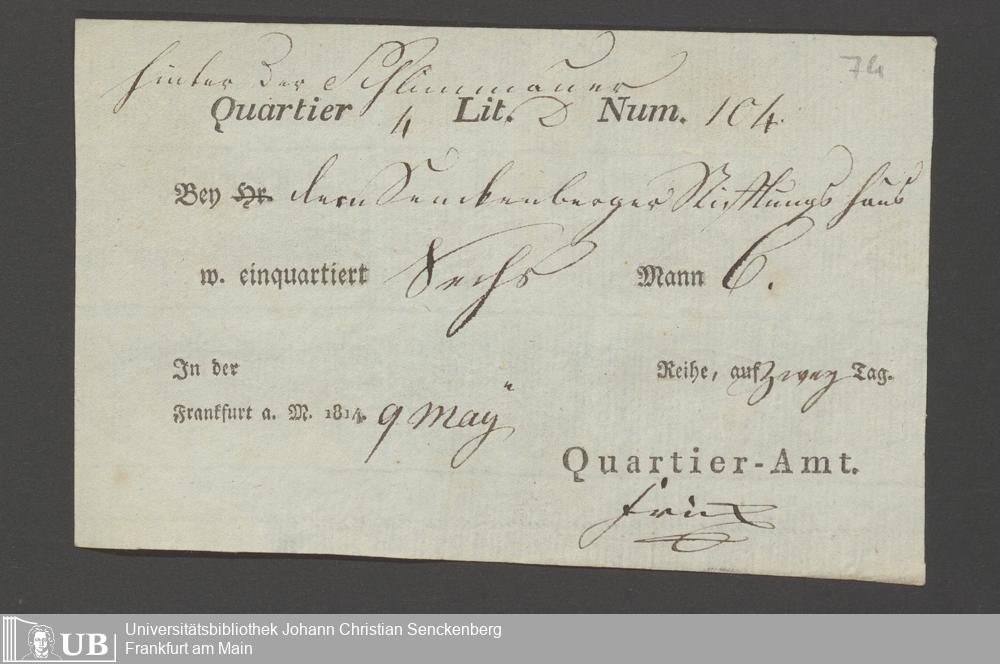 hinter der Schlimmauer
74
Quartier 4 Lit. D Num. 104.
Bey Hr. dem Senckenberger Stifftungs Haus
w. einquartiert Sechs Mann 6.
In der Reihe, auf Zwey Tag.
Frankfurt a. M. 1814. 9 May
Quartier-Amt.
UB
Universitätsbibliothek Johann Christian Senckenberg
Frankfurt am Main